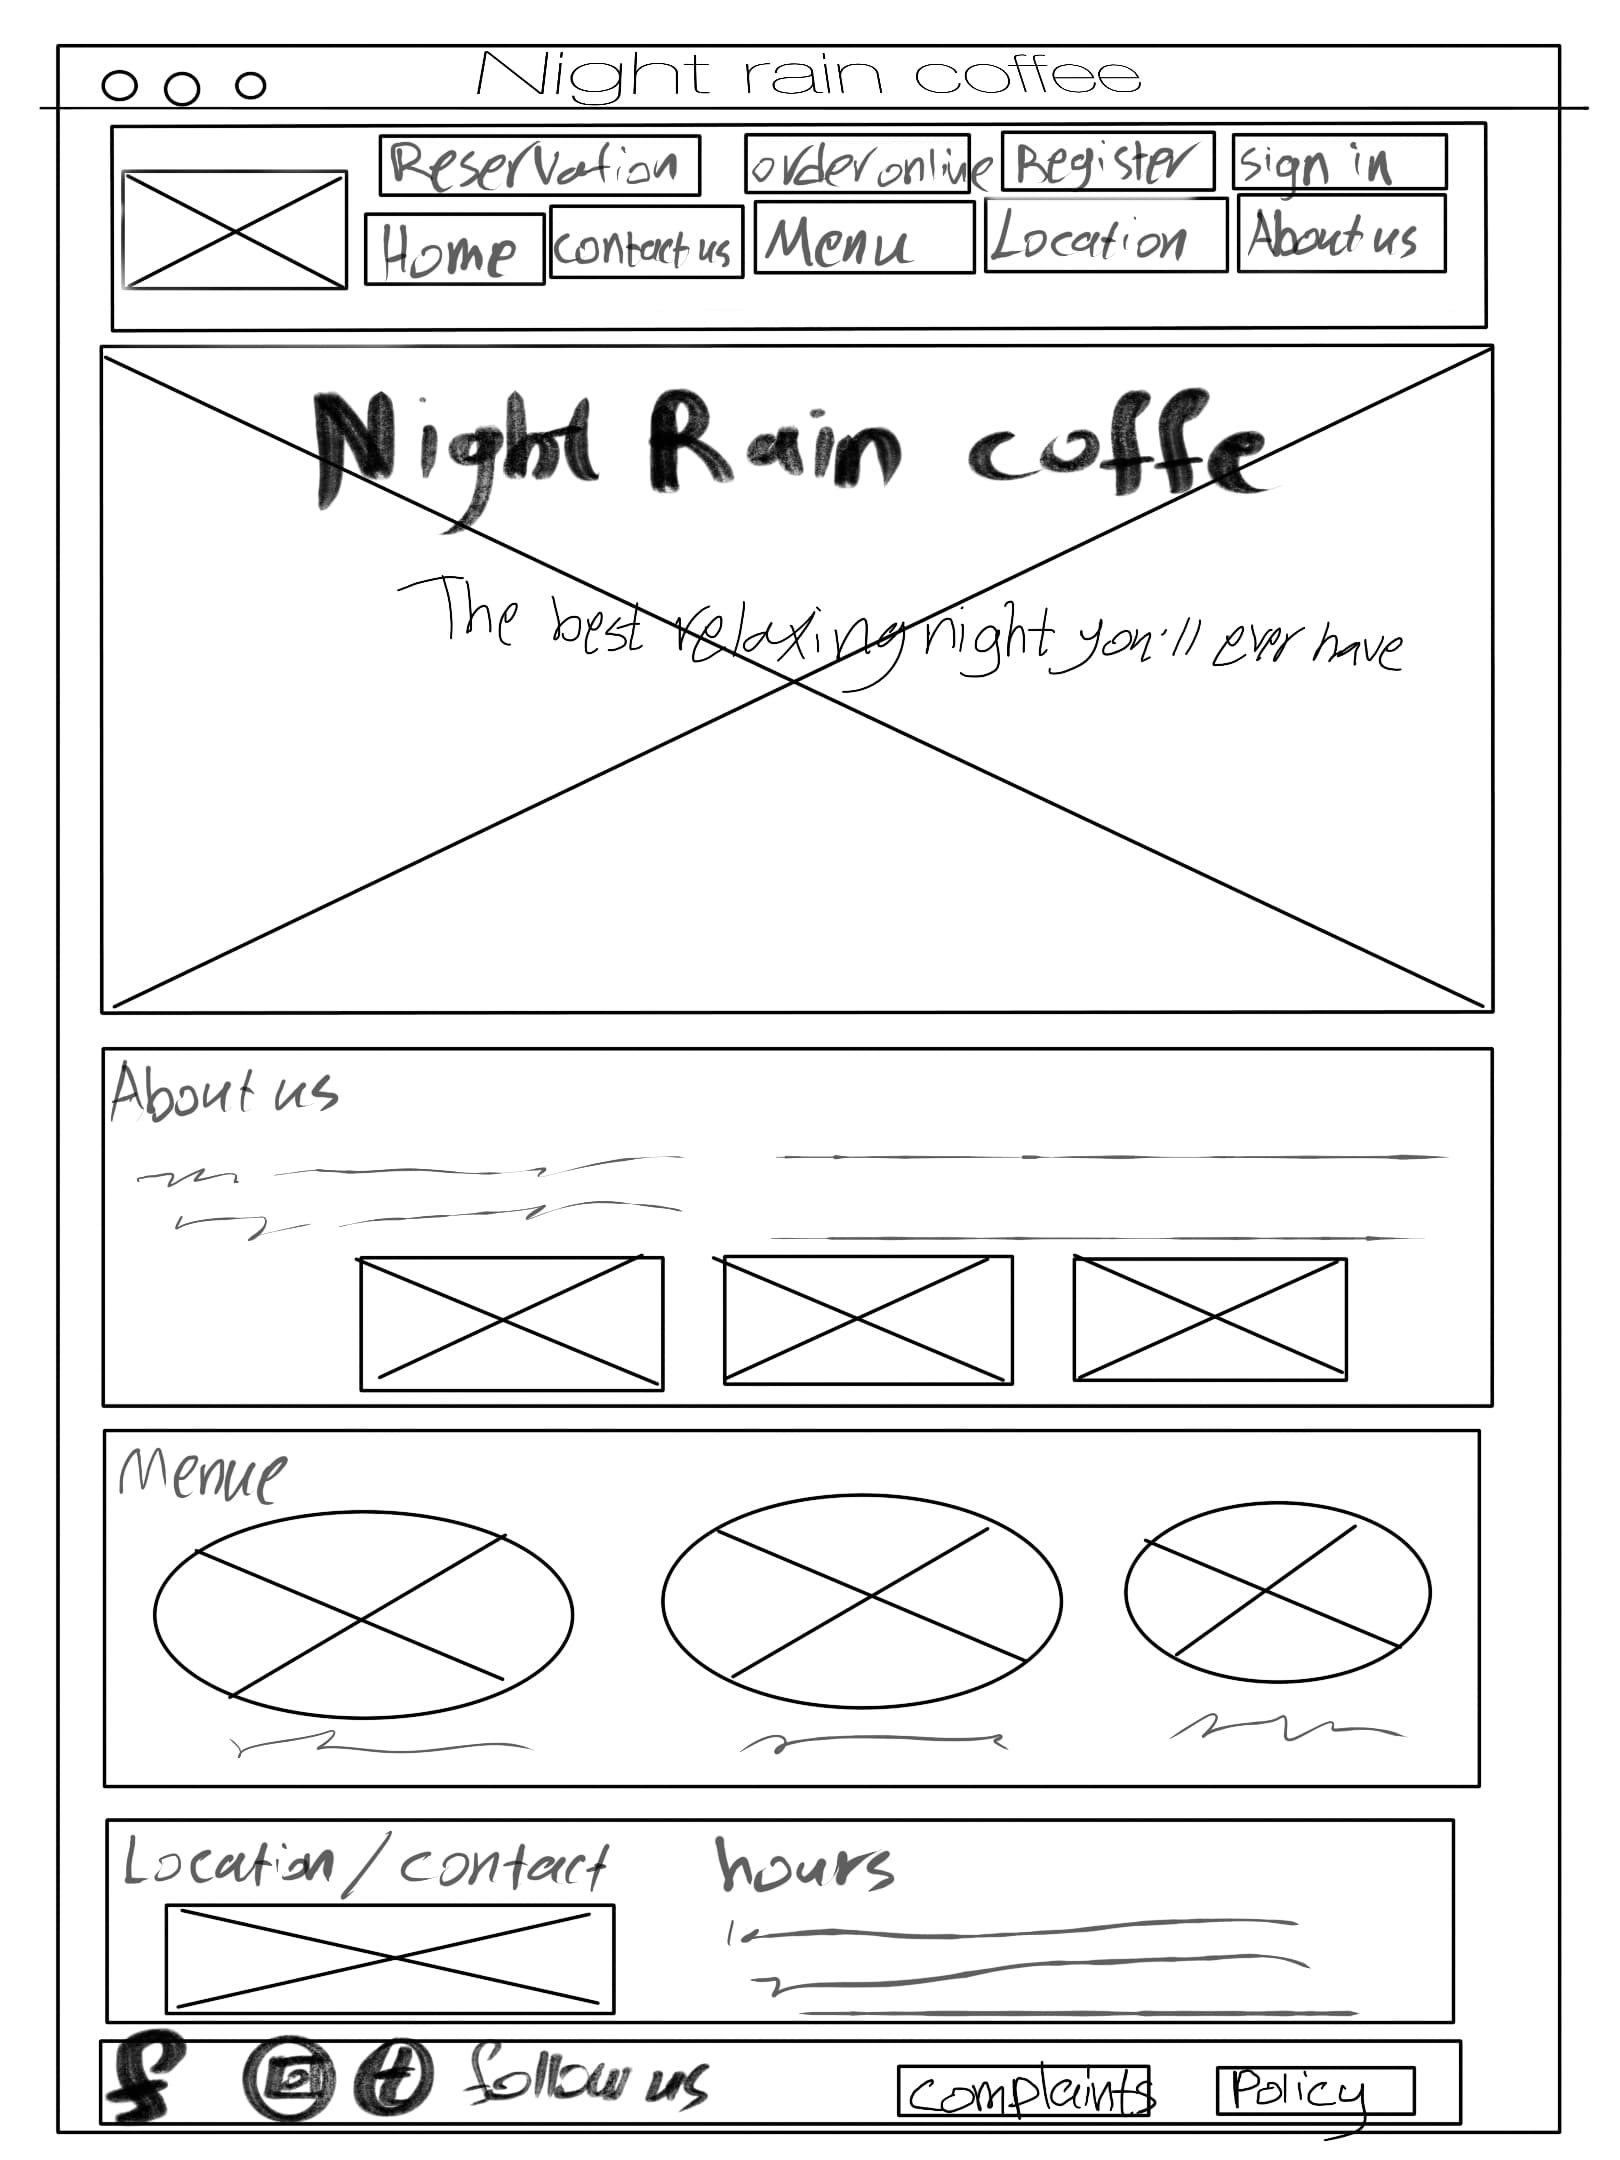 Night rain coffee
Reservation
order online
Register
sign in
Home
contact us
Menu
Location
About us
Night Rain coffe
The best relaxing night you'll ever have
About us
Menue
Location / contact
hours
f
t
follow us
complaints
Policy